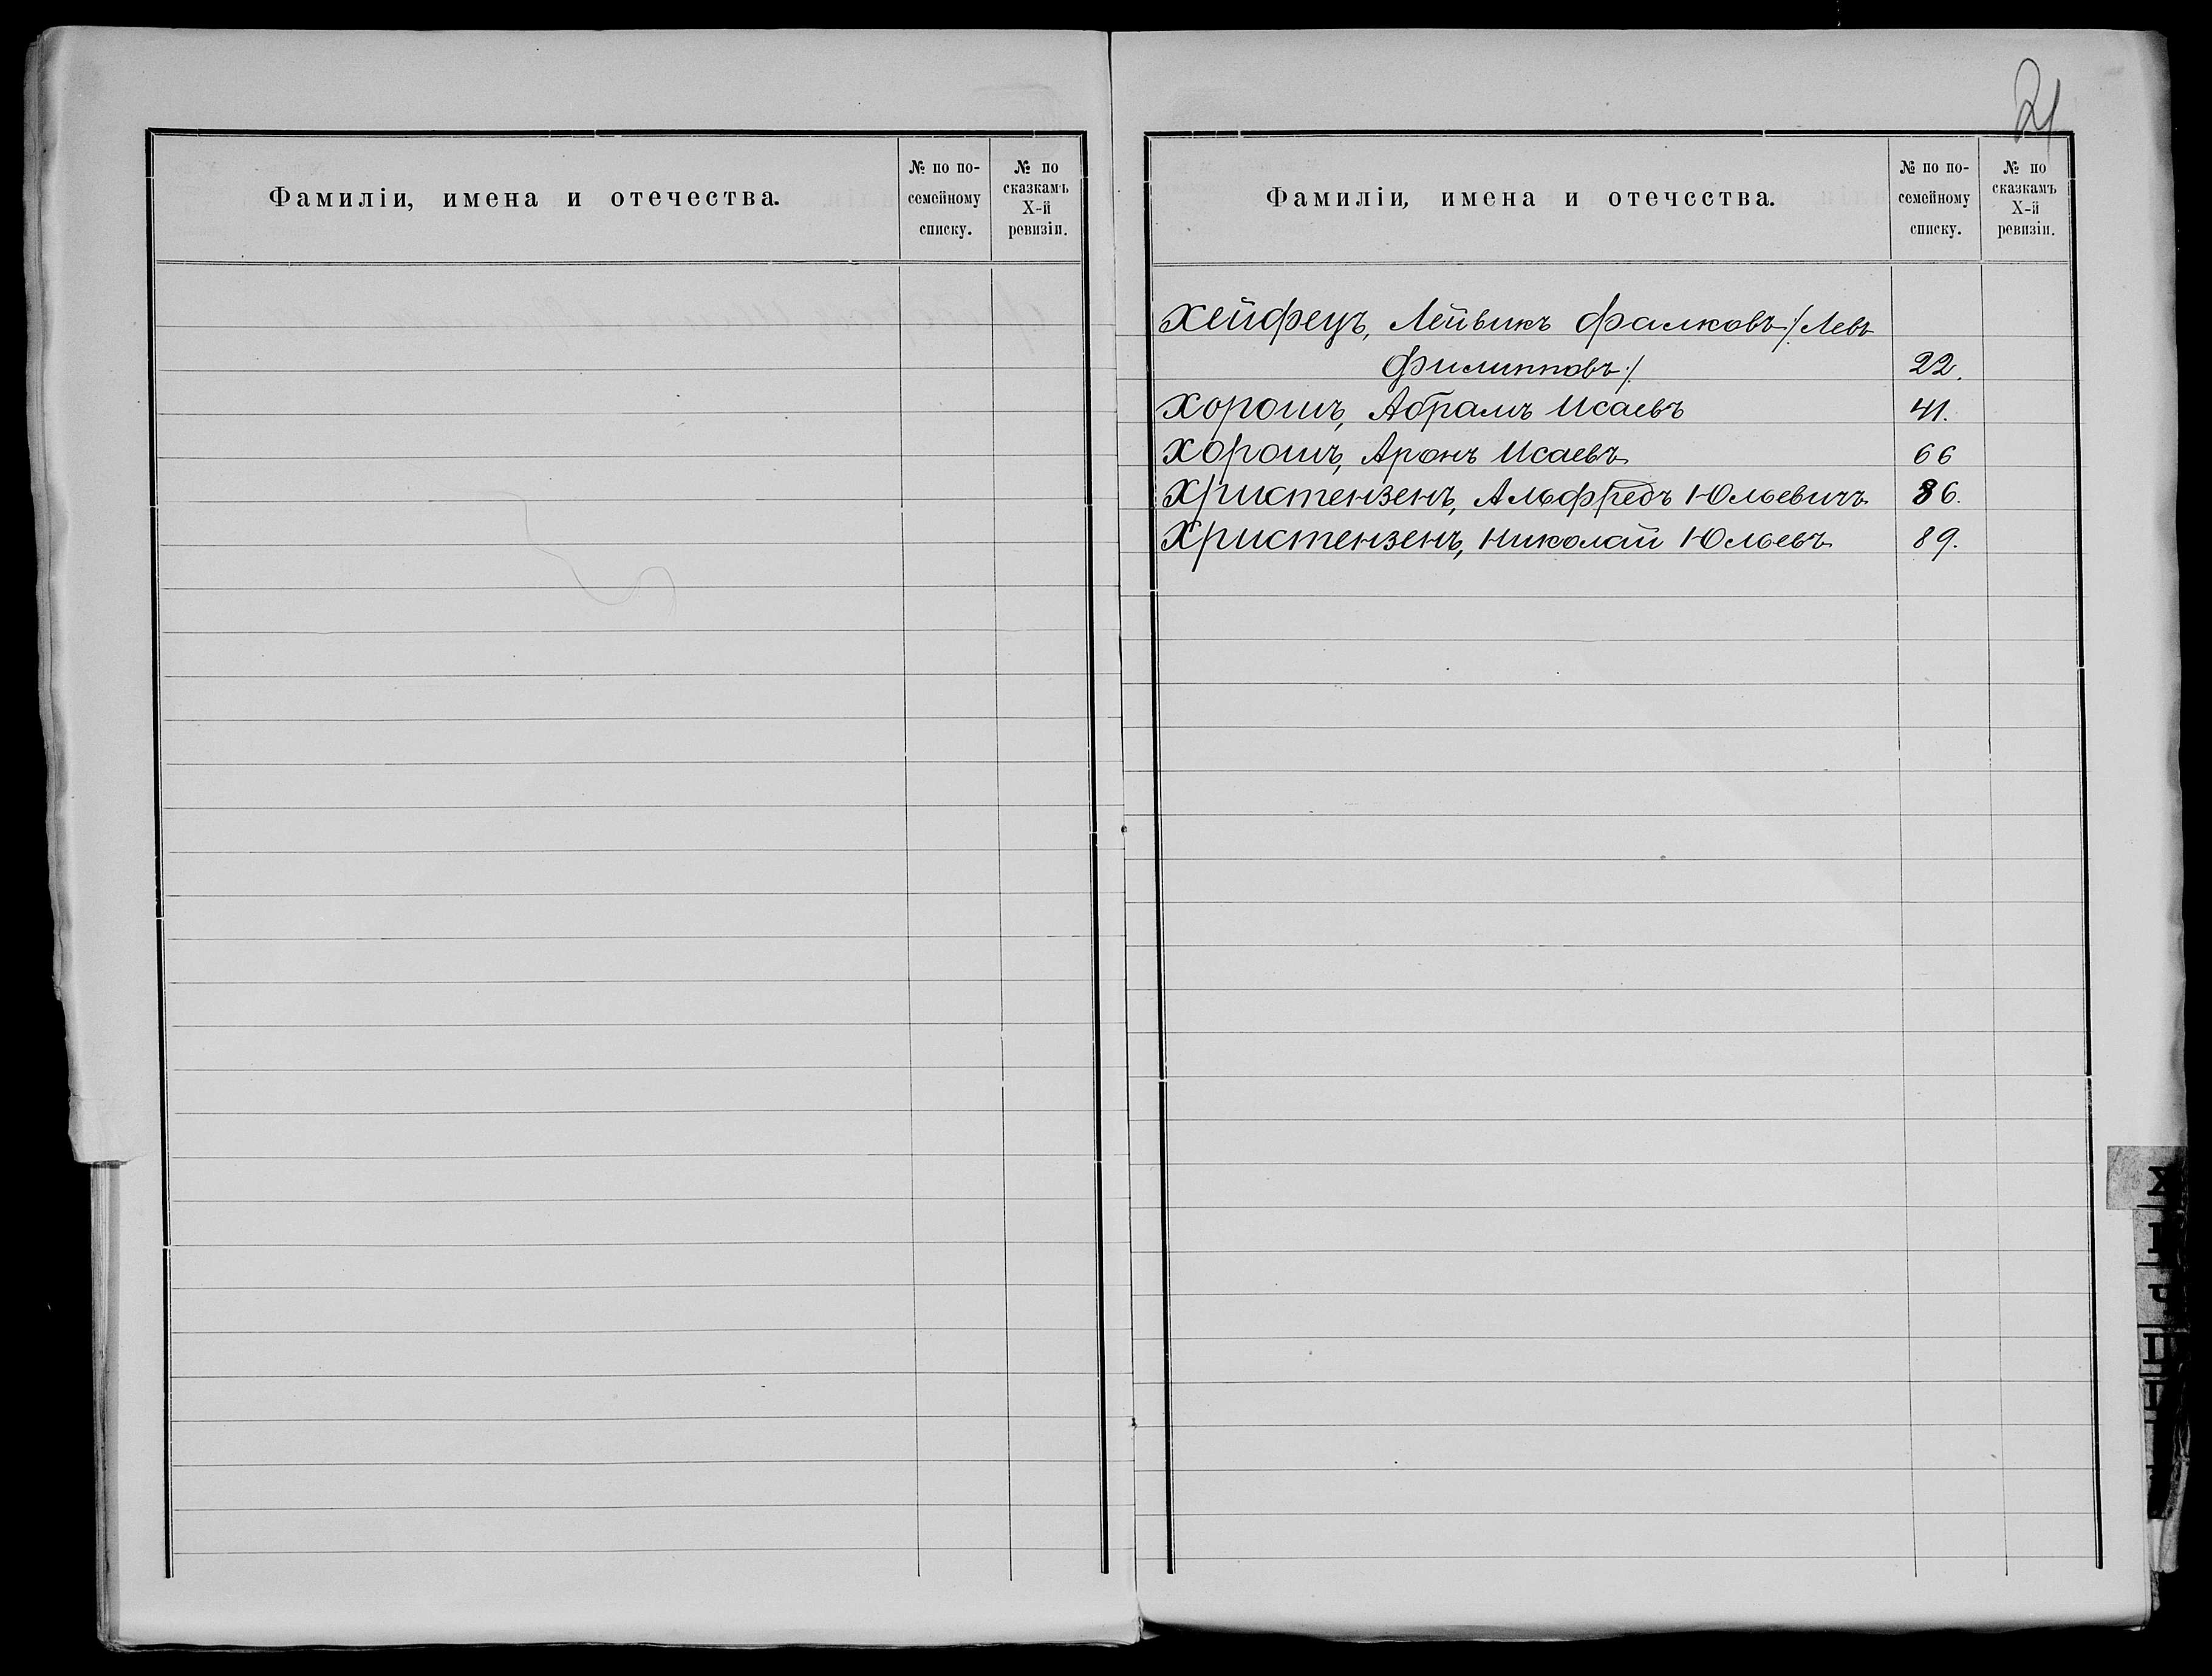 Фамиліи, имена и отечества.
№ по по-
семейному
списку.
№ по
сказкамъ
X-й
ревизіи.
21
Фамиліи, имена и отечества.
№ по по-
семейному
списку.
№ по
сказкамъ
X-й
ревизіи.
Хейфецъ, Лейвикъ Фалковъ /:Левъ
Филипповъ:/ 22.
Хорошъ, Абрамъ Исаевъ 41.
Хорошъ, Аронъ Исаевъ 66
Христензенъ, Альфредъ Юльевичъ 86.
Христензенъ, Николай Юльевъ 89.